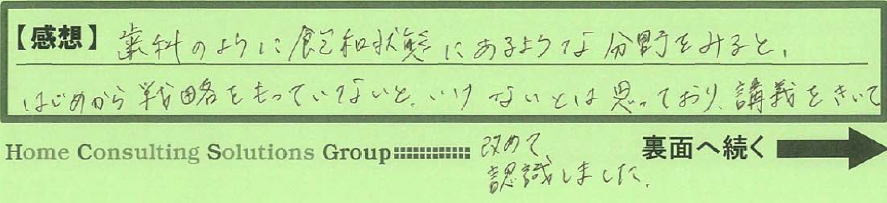 【感想】歯科のように飽和状態にあるような分野をみると、
はじめから戦略をもっていないと、いけないとは思っており、講義をきいて
改めて
認識しました。
Home Consulting Solutions Group
裏面へ続く